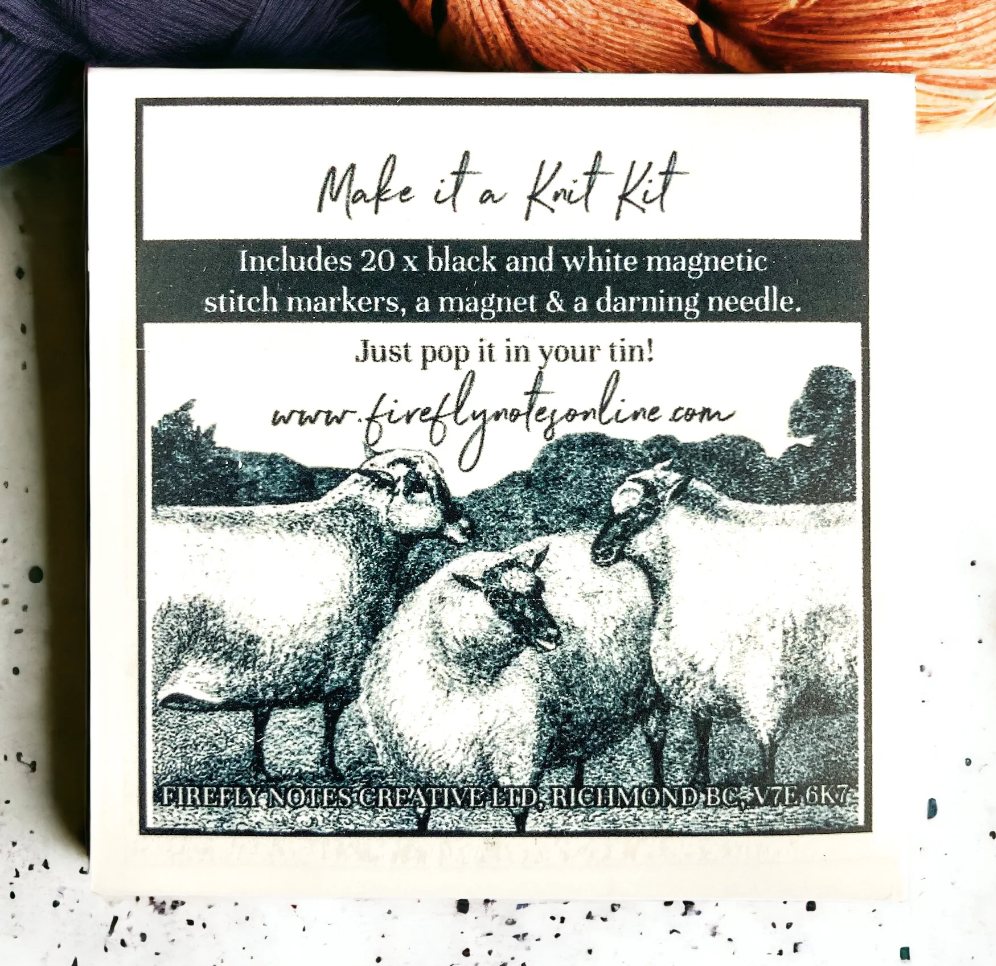 Make it a Knit Kit
Includes 20 x black and white magnetic
stitch markers, a magnet & a darning needle.
Just pop it in your tin!
www.fireflynotesonline.com
FIREFLY NOTES CREATIVE LTD, RICHMOND BC, V7E 6K7